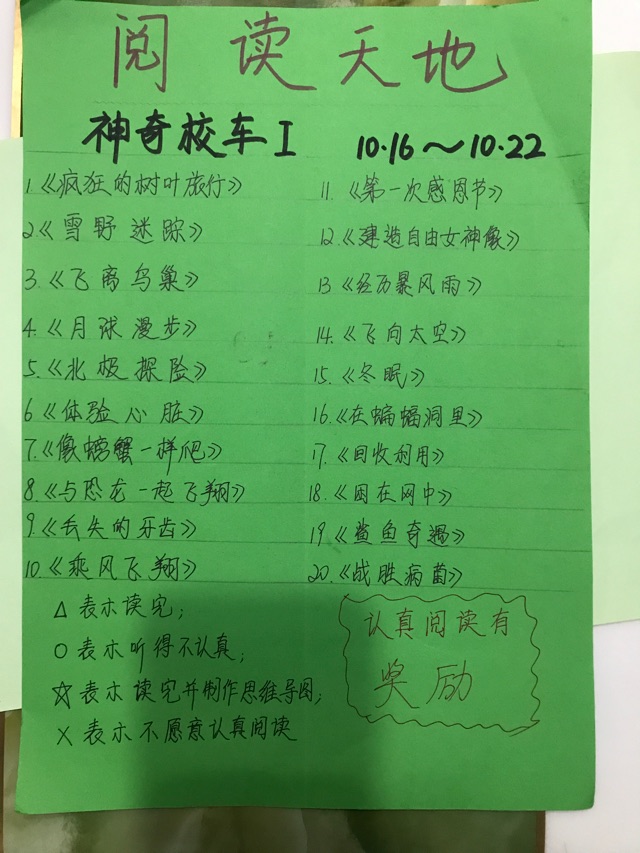 阅读天地
神奇校车I 10.16～10.22
1.《疯狂的树叶旅行》
2.《雪野迷踪》
3.《飞离鸟巢》
4.《月球漫步》
5.《北极探险》
6《体验心脏》
7.《像螃蟹一样爬》
8.《与恐龙一起飞翔》
9.《丢失的牙齿》
10.《乘风飞翔》
11.《第一次感恩节》
12.《建造自由女神像》
13《经历暴风雨》
14.《飞向太空》
15.《冬眠》
16.《在蝙蝠洞里》
17.《回收利用》
18.《困在网中》
19《鲨鱼奇遇》
20.《战胜病菌》
△表示读完；
○表示听得不认真；
☆表示读完并制作思维导图；
×表示不愿意认真阅读
认真阅读有
奖励